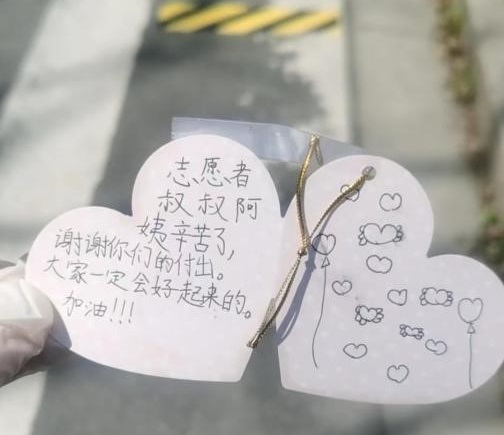 志愿者
叔叔阿
姨辛苦了,
谢谢你们的付出。
大家一定会好起来的。
加油!!!